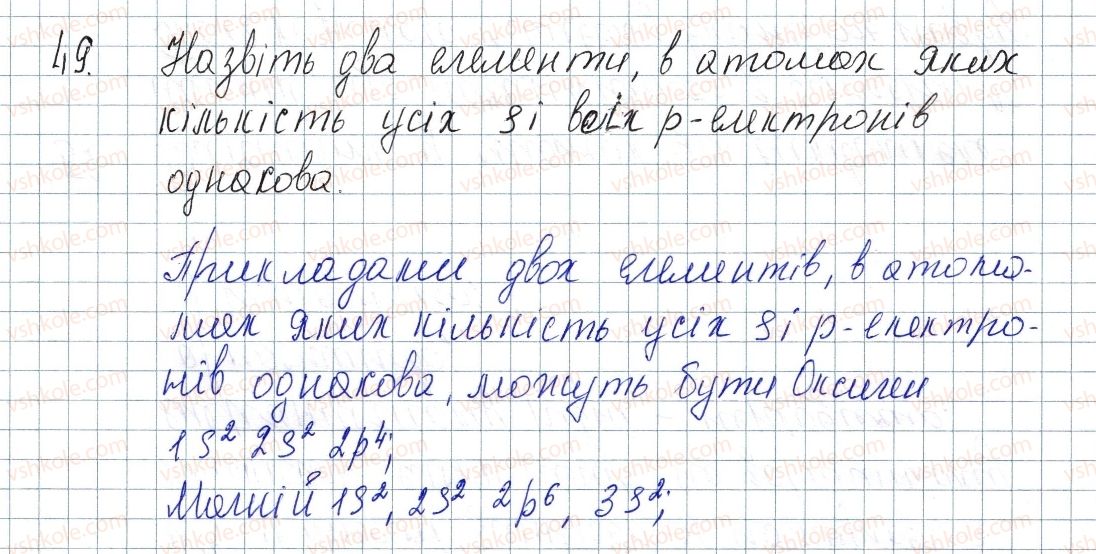 49. Назвіть два елементи, в атомах яких
кількість усіх s і всіх p-електронів
однакова.
Прикладами двох елементів, в атома-
мах яких кількість усіх s і p-електро-
нів однакова, можуть бути Оксиген
1s² 2s² 2p⁴;
Магній 1s², 2s² 2p⁶, 3s²;